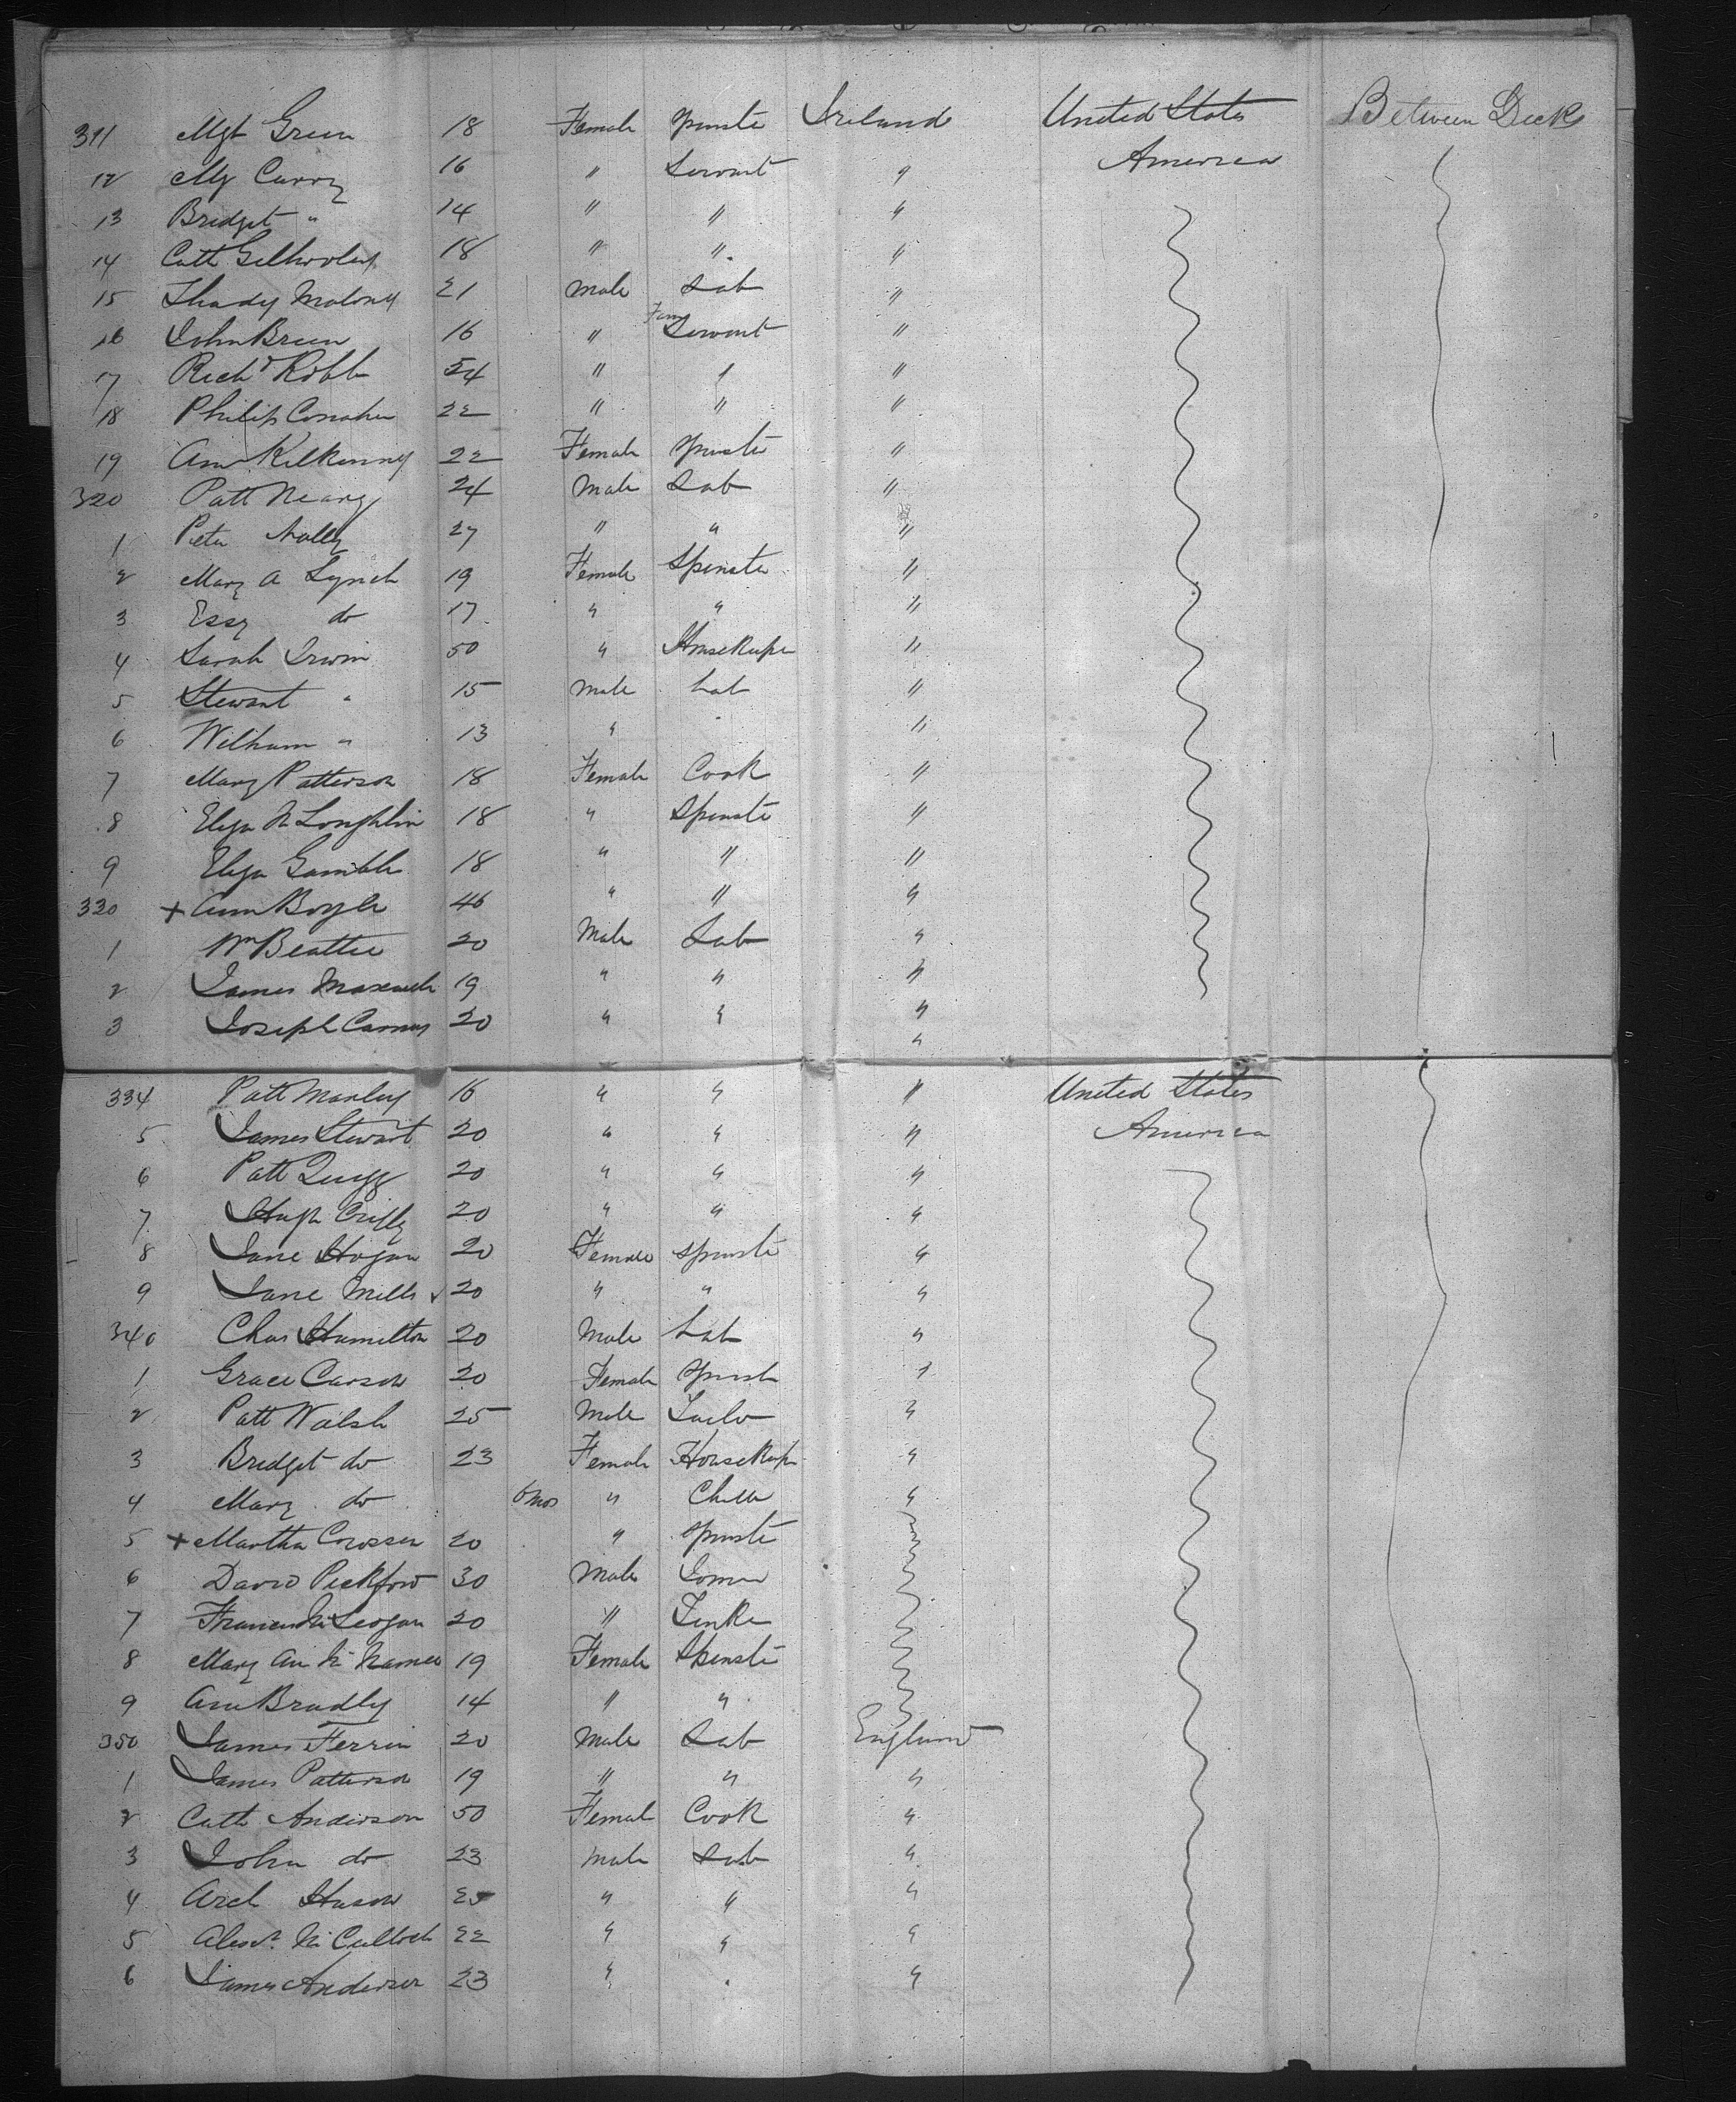 311 Mgt Green 18 Female Spinste Ireland United States Between Decks
12 My Curry 16 " Servant " America
13 Bridget " 14 " " "
14 Cath Gilhooley 18 " " "
15 Thady Maloney 21 Male Lab "
16 John Breen 16 " Farm Servant "
17 Richd Robb 54 " " "
18 Philip Conaher 22 " " "
19 Ann Kilkenny 22 Female Spinste "
320 Patt Neary 24 Male Lab "
1 Peter Nally 27 " " "
2 Mary A Lynch 19 Female Spinster "
3 Essy do 17 " " "
4 Sarah Irwin 50 " Housekeeper "
5 Stewart " 15 Male Lab "
6 William " 13 " "
7 Mary Patterson 18 Female Cook "
8 Eliza McLoughlin 18 " Spinste "
9 Eliza Gamble 18 " " "
330 + Ann Boyle 46 " " "
1 Wm Beattie 20 Male Lab "
2 James 19 " " "
3 Joseph 20 " " "
"
334 Patt Manley 16 " " " United States
5 James Stewart 20 " " " America
6 Patt Quigg 20 " " "
7 Hugh 20 " " "
8 Jane Hogan 20 Female Spinste "
9 Jane Mills 20 " " "
340 Chas Hamilton 20 Male Lab "
1 Grace Carson 20 Female Spinst "
2 Patt Walsh 25 Male Tailor "
3 Bridget do 23 Female Housekeeper "
4 Mary do 6 mos " Child "
5 + Martha Crossen 20 " Spinste
6 David Pickford 30 Male
7 20 "
8 Mary Ann McNamee 19 Female Spinste
9 Ann Bradly 14 " "
350 James Ferrin 20 Male Lab England
1 James Patterson 19 " " "
2 Cath Anderson 50 Female Cook "
3 John do 23 Male Lab "
4 Arch 25 " " "
5 Alexr McCulloch 22 " " "
6 James Anderson 23 " "